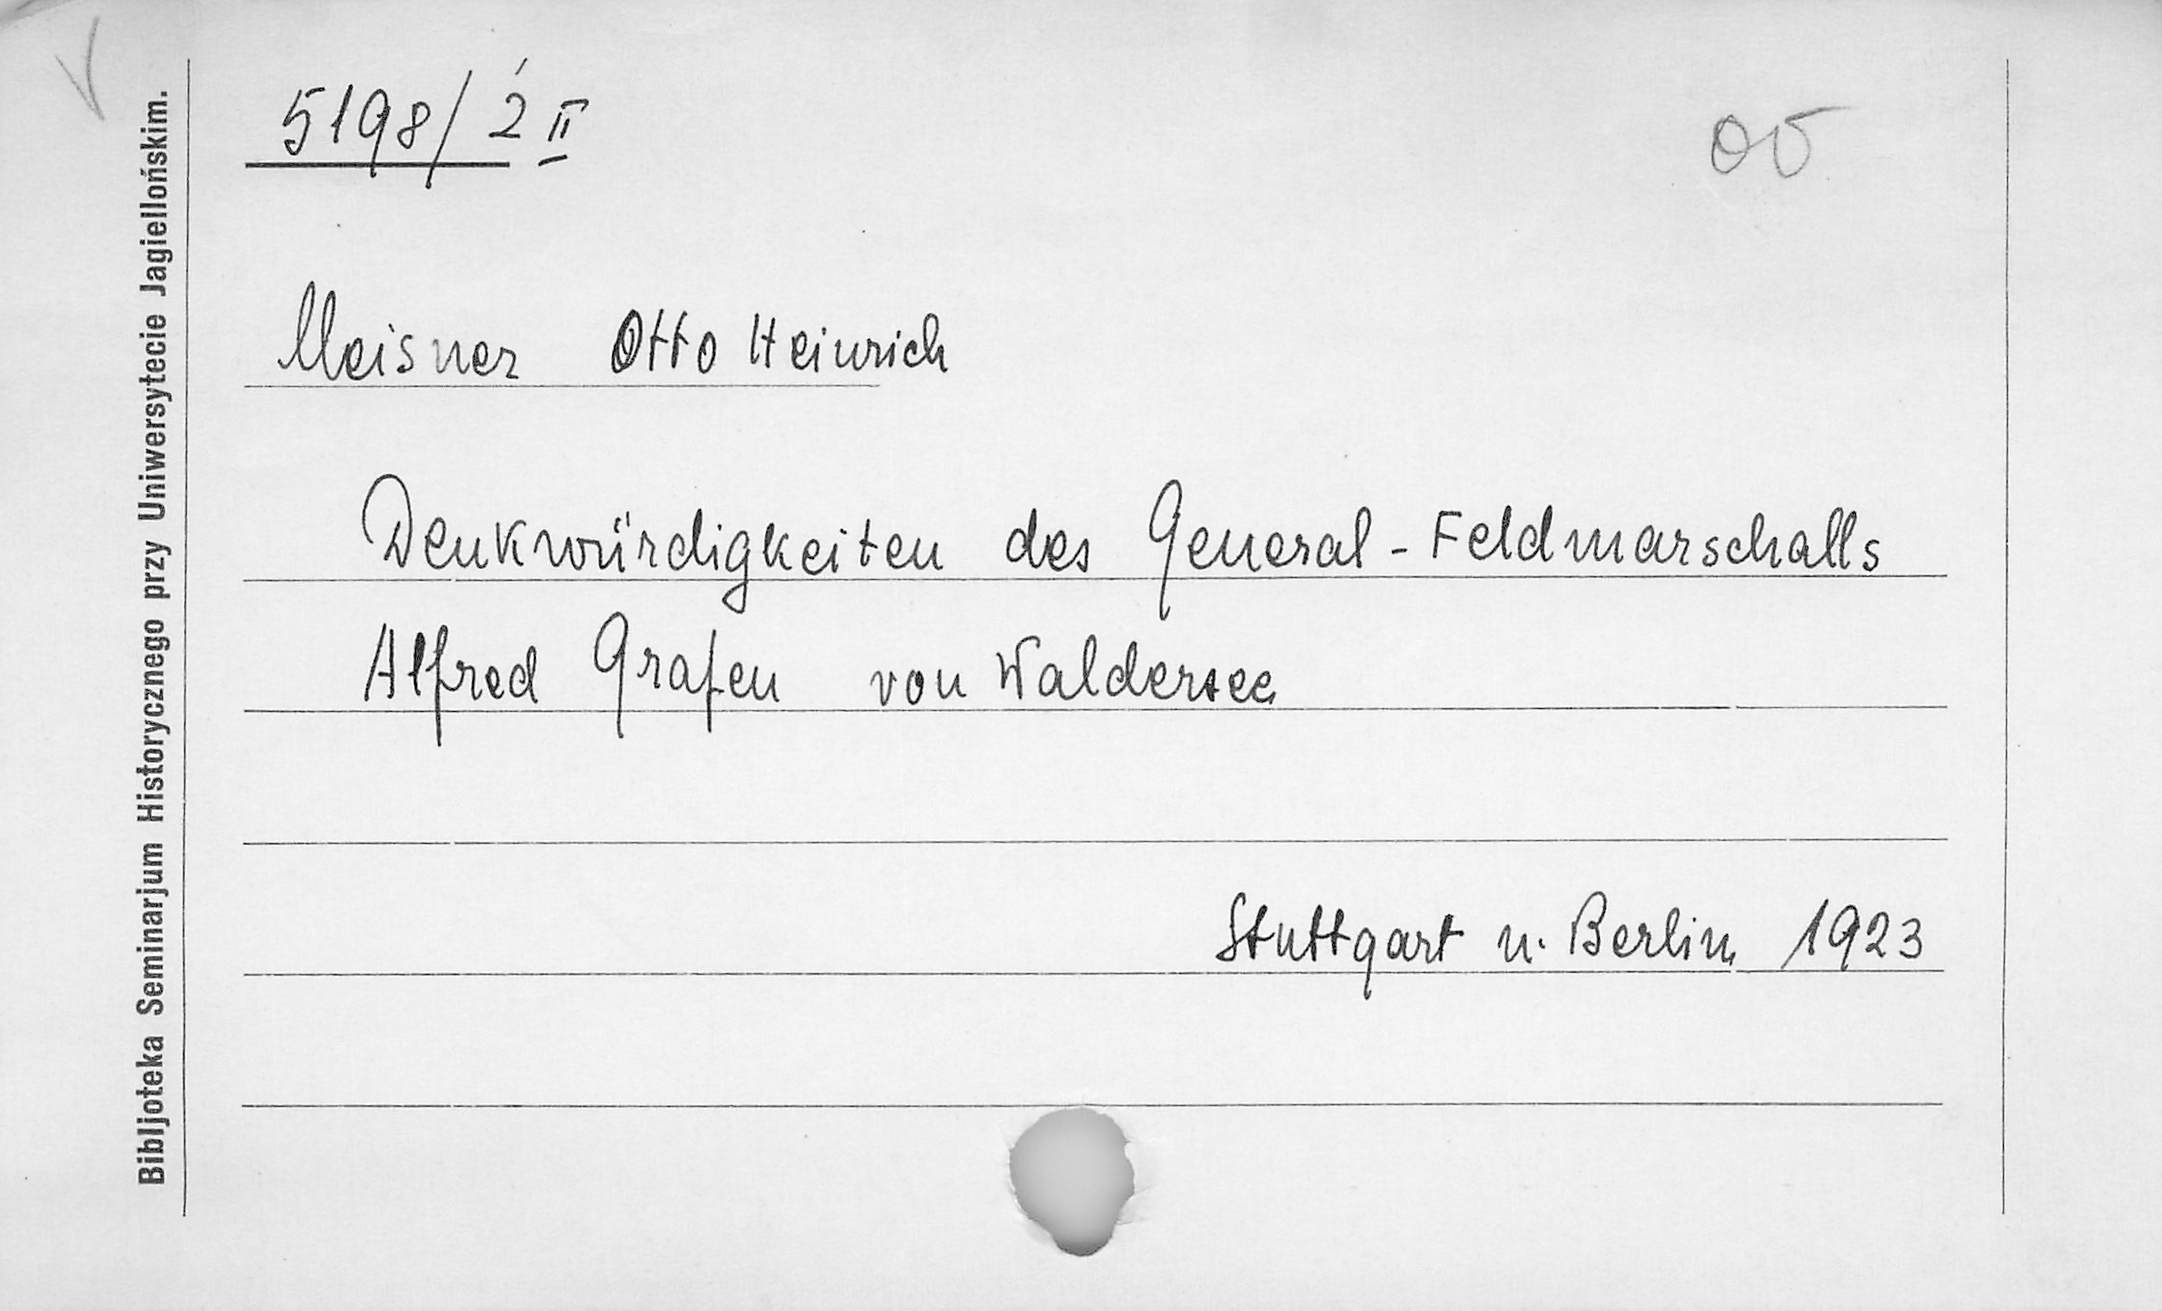 5198/2 II
Meisner Otto Heinrich
Denkwürdigkeiten des General-Feldmarschalls
Alfred Grafen von Waldersee
Stuttgart u. Berlin 1923
Bibljoteka Seminarjum Historycznego przy Uniwersytecie Jagiellońskim.